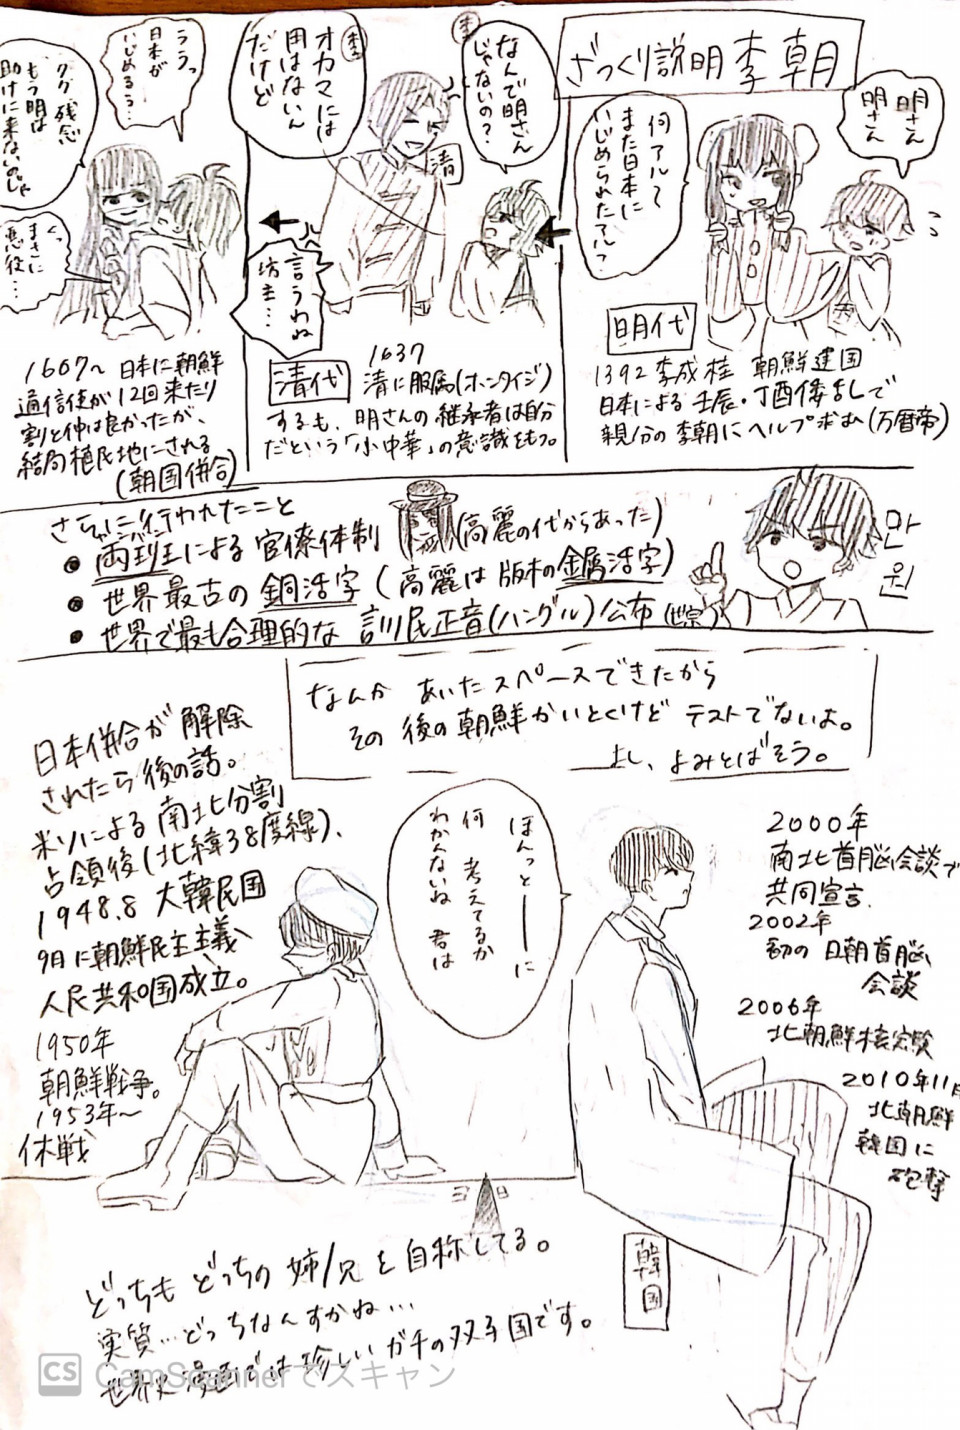 ざっくり説明 李朝
明さん
明さん
何アル?
また日本に
いじめられたアル?
明代
1392 李成桂 朝鮮建国
日本による 壬辰・丁酉倭乱で
親分の 李朝に ヘルプ求む (万暦帝)
李
なんで明さん
じゃないの?
李
オカマには
用はないん
だけど
清
言うわね
坊主…
清代
1637
清に服属(ホンタイジ)
するも、明さんの継承者は自分
だという「小中華」の意識をもつ。
ううっ
日本が
いじめるう…
クク 残念
もう明は
助けに来ないのじゃ
くっ
まさに
悪役…
1607~ 日本に朝鮮
通信使が12回来たり
割と仲は良かったが、
結局植民地にされる
(朝国併合)
さらに行われたこと
● 両班による官僚体制 (高麗の代からあった)
● 世界最古の 銅活字 (高麗は 版木の金属活字)
● 世界で最も合理的な 訓民正音(ハングル)公布 (世宗)
만
원
なんか あいたスペースできたから
その 後の朝鮮かいとくけど テストでないよ。
よし、よみとばそう。
日本併合が解除
されたら後の話。
米ソによる南北分割
占領後(北緯38度線)、
1948.8 大韓民国
9月に朝鮮民主主義
人民共和国成立。
1950年
朝鮮戦争。
1953年~
休戦
ほんっとーーに
何 考えてるか
わかんないね 君は
2000年
南北首脳会談で
共同宣言.
2002年
初の 日朝首脳
会談
2006年
北朝鮮核実験
2010年11月
北朝鮮
韓国に
砲撃
韓国
どっちも どっちの 姉/兄 を自称してる。
実質…どっちなんすかね…
世界史漫画では珍しいガチの双子国です。
CS CamScannerでスキャン